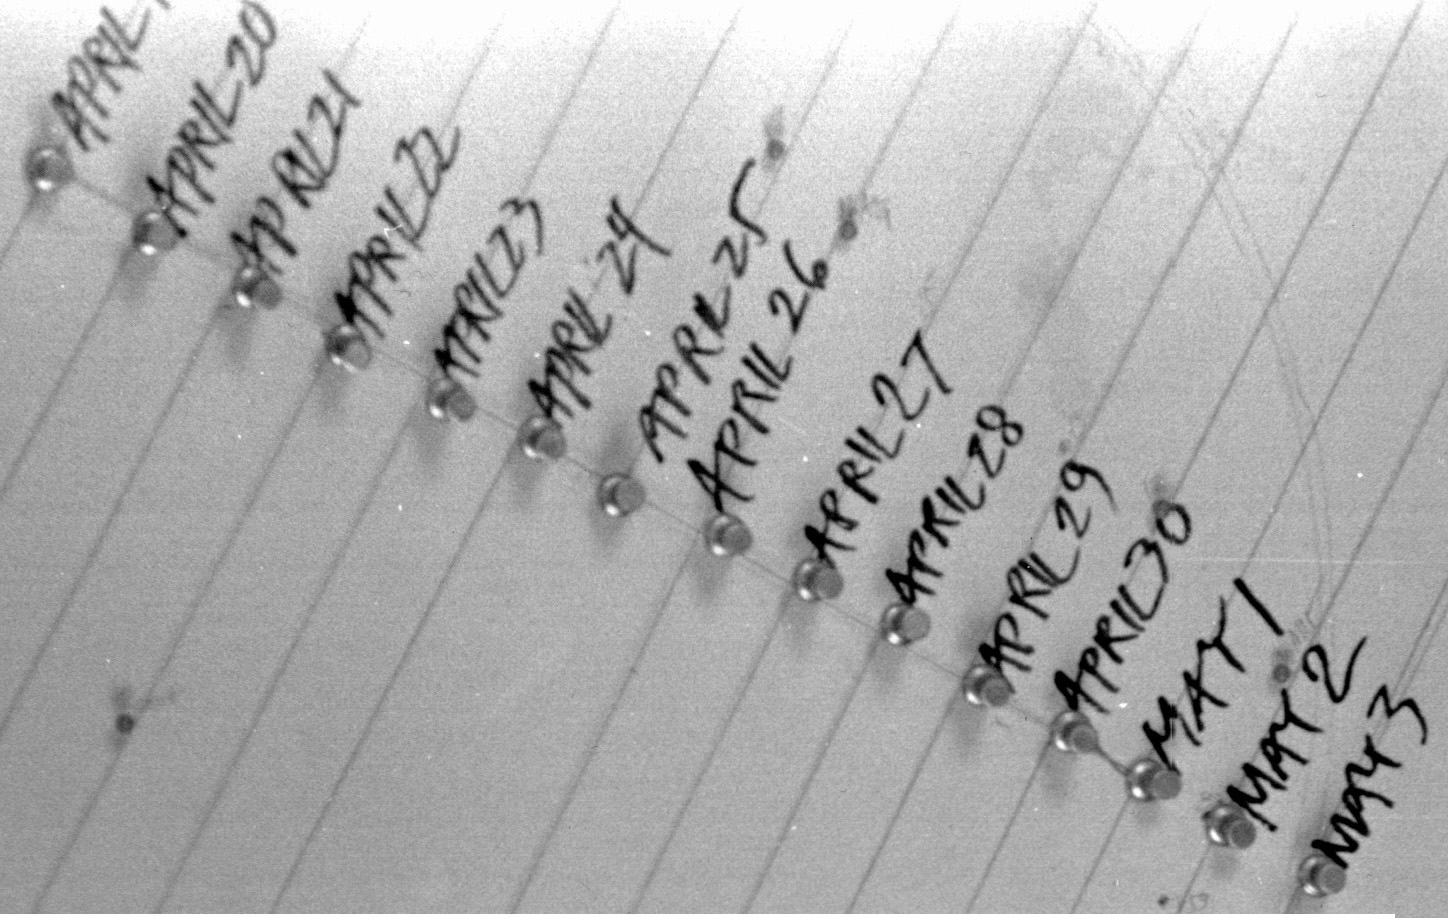 APRIL
APRIL 20
APRIL 21
APRIL 22
APRIL 23
APRIL 24
APRIL 25
APRIL 26
APRIL 27
APRIL 28
APRIL 29
APRIL 30
MAY 1
MAY 2
MAY 3